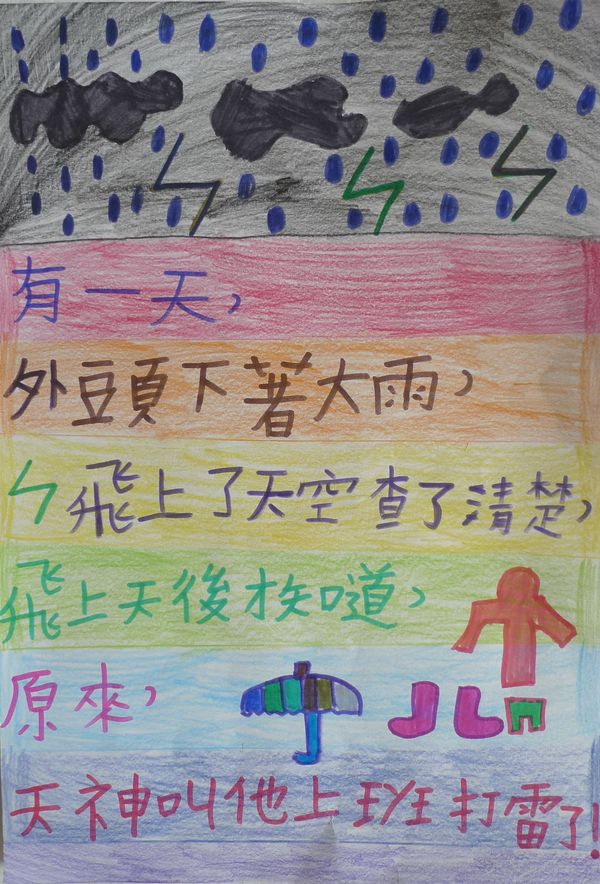 有一天，
外頭下著大雨，
飛上了天空查了清楚，
飛上天後才知道，
原來，
天神叫他上班打雷了！